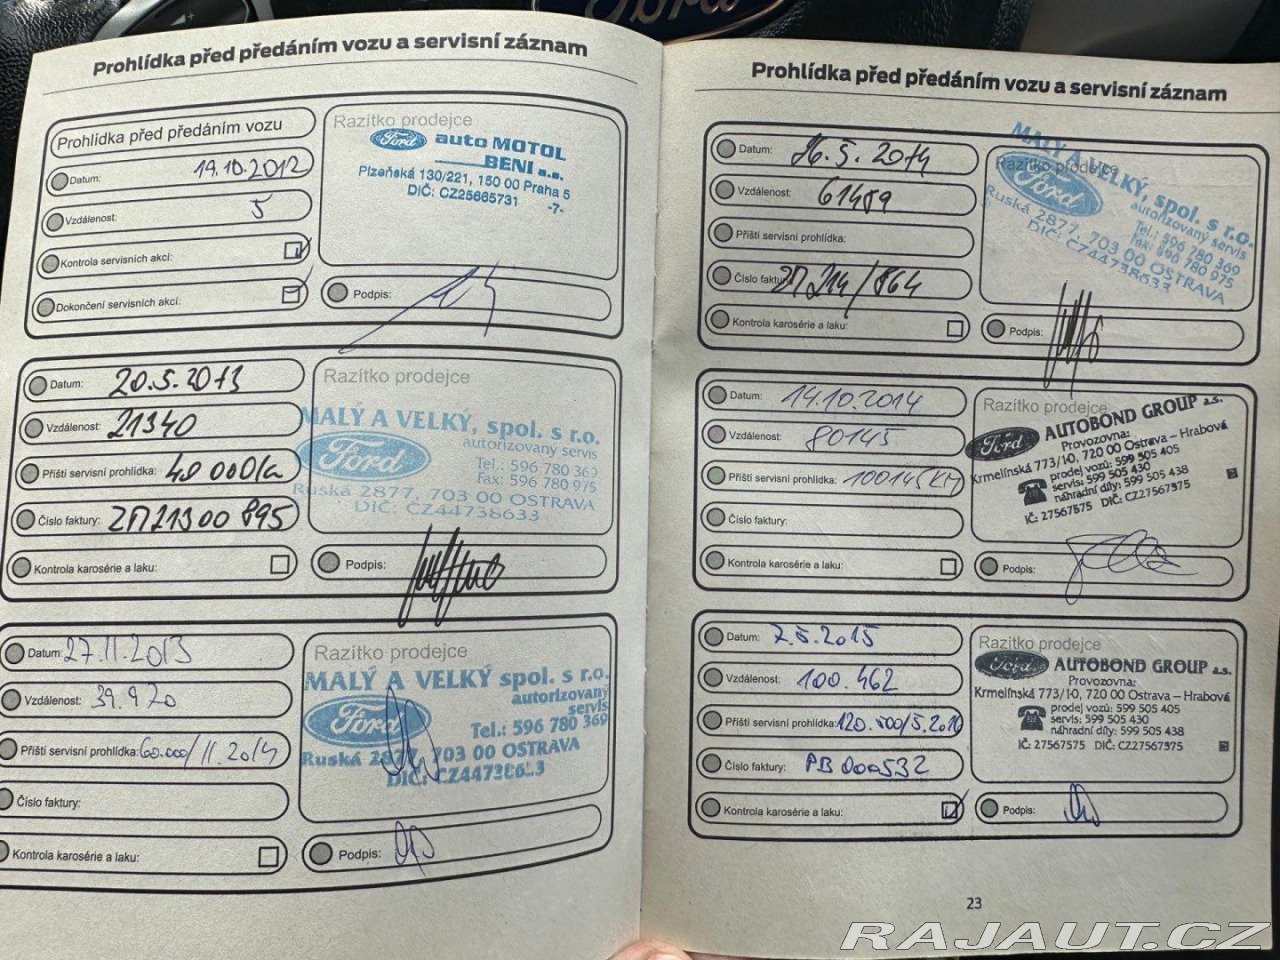 Ford
Prohlídka před předáním vozu a servisní záznam
Prohlídka před předáním vozu
Datum: 19.10.2012
Vzdálenost: 5
Kontrola servisních akcí:
Dokončení servisních akcí:
Razítko prodejce
Ford auto MOTOL
BENI a.s.
Plzeňská 130/221, 150 00 Praha 5
DIČ: CZ25665731 -7-
Podpis:
Datum: 20.5.2013
Vzdálenost: 21340
Příští servisní prohlídka:
Číslo faktury:
Kontrola karosérie a laku:
Razítko prodejce
MALÝ A VELKÝ, spol. s r.o.
autorizovaný servis
Ford
Tel.: 596 780 369
Fax: 596 780 975
Ruská 2877, 703 00 OSTRAVA
DIČ: CZ44738633
Podpis:
Datum: 27.11.2013
Vzdálenost: 39.970
Příští servisní prohlídka: 60.000/11.2014
Číslo faktury:
Kontrola karosérie a laku:
Razítko prodejce
MALÝ A VELKÝ spol. s r.o.
autorizovaný
servis
Ford
Tel.: 596 780 369
Ruská 703 00 OSTRAVA
DIČ:
Podpis:
Prohlídka před předáním vozu a servisní záznam
Datum: 26.5.2014
Vzdálenost: 61489
Příští servisní prohlídka:
Číslo faktury:
Kontrola karosérie a laku:
Razítko prodejce
MALÝ A VELKÝ, spol. s r.o.
autorizovaný servis
Ford
Tel.: 596 780 369
Fax: 596 780 975
Ruská 2877, 703 00 OSTRAVA
DIČ: CZ44738633
Podpis:
Datum: 14.10.2014
Vzdálenost: 80145
Příští servisní prohlídka: 100145 KM
Číslo faktury:
Kontrola karosérie a laku:
Razítko prodejce
Ford AUTOBOND GROUP a.s.
Provozovna:
Krmelínská 773/10, 720 00 Ostrava – Hrabová
prodej vozů: 599 505 405
servis: 599 505 430
náhradní díly: 599 505 438
IČ: 27567575 DIČ: CZ27567575
Podpis:
Datum: 7.5.2015
Vzdálenost: 100.462
Příští servisní prohlídka: 120.500/5.2016
Číslo faktury:
Kontrola karosérie a laku:
Razítko prodejce
Ford AUTOBOND GROUP a.s.
Provozovna:
Krmelínská 773/10, 720 00 Ostrava – Hrabová
prodej vozů: 599 505 405
servis: 599 505 430
náhradní díly: 599 505 438
IČ: 27567575 DIČ: CZ27567575
Podpis:
23
RAJAUT.CZ